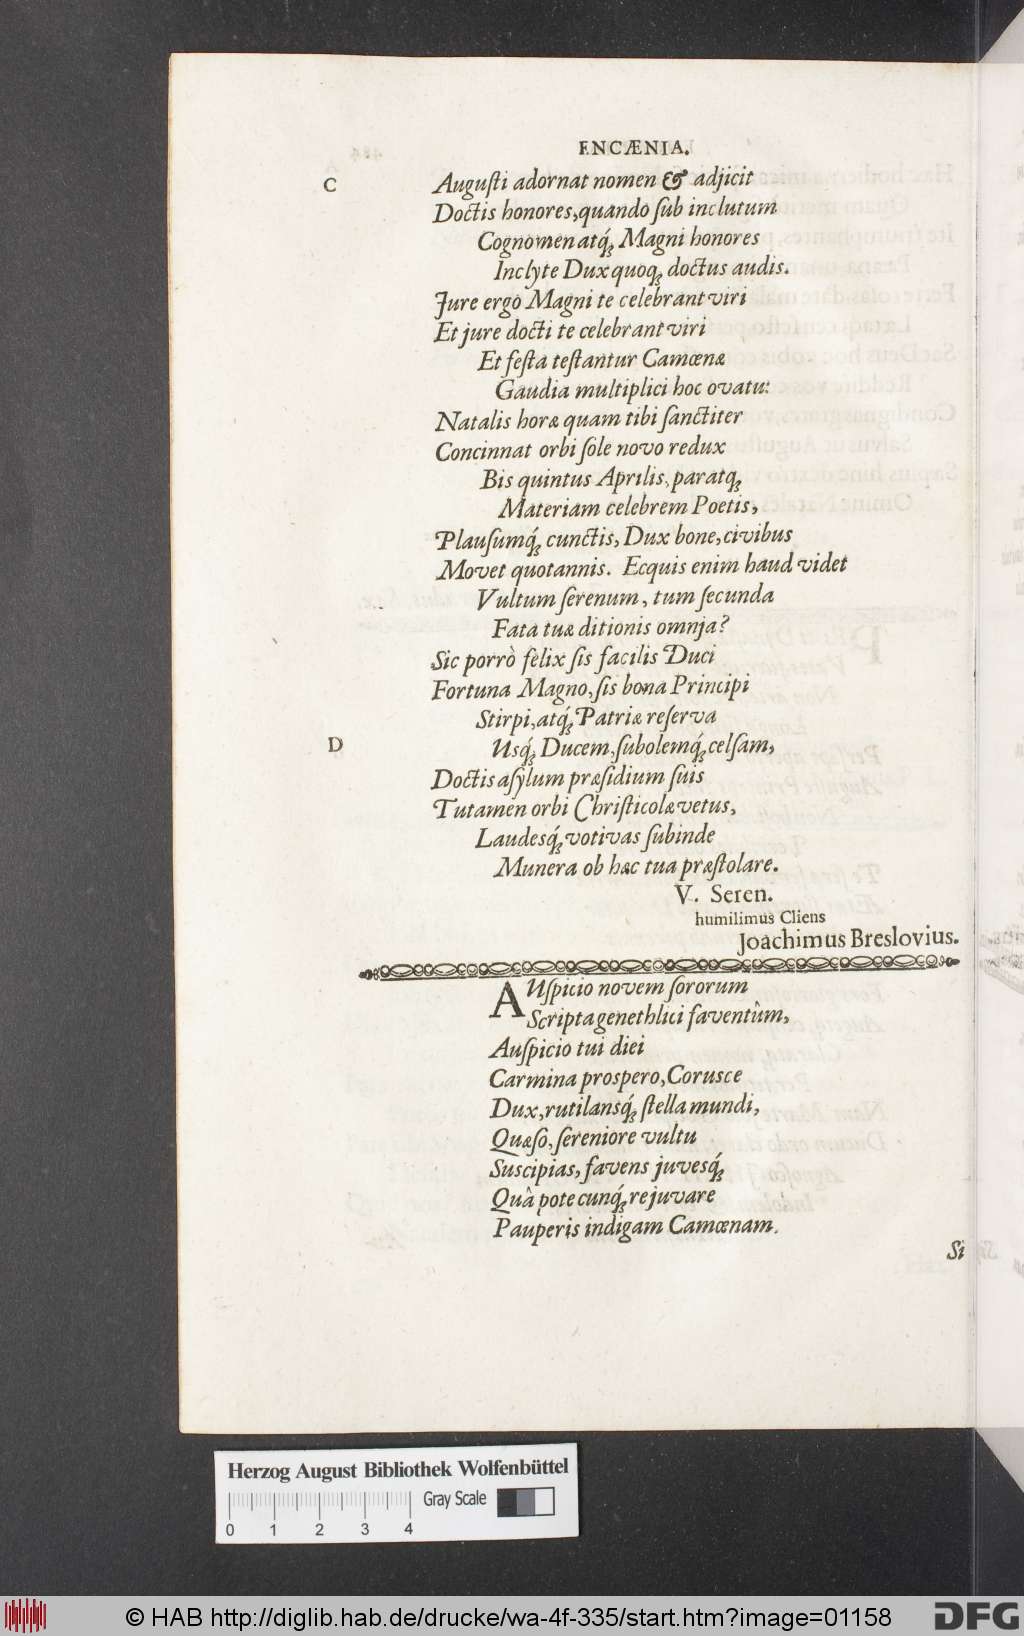 ENCÆNIA.
C
Auguſti adornat nomen & adjicit
Doctis honores, quando ſub inclutum
Cognomen atq́; Magni honores
Inclyte Dux quoq; doctus audis.
Jure ergò Magni te celebrant viri
Et jure docti te celebrant viri
Et feſta teſtantur Camœnæ
Gaudia multiplici hoc ovatu:
Natalis horæ quam tibi ſanctiter
Concinnat orbi ſole novo redux
Bis quintus Aprilis, paratq;
Materiam celebrem Poetis,
Plauſumq́; cunctis, Dux bone, civibus
Movet quotannis. Ecquis enim haud videt
Vultum ſerenum, tum ſecunda
Fata tuæ ditionis omnja?
Sic porrò felix ſis facilis Duci
Fortuna Magno, ſis bona Principi
Stirpi, atq́; Patriæ reſerva
D
Usq́; Ducem, ſubolemq́; celſam,
Doctis aſylum præſidium ſuis
Tutamen orbi Chriſticolæ vetus,
Laudesq́; votivas ſubinde
Munera ob hæc tua præſtolare.
V. Seren.
humilimus Cliens
Joachimus Breslovius.
AUſpicio novem ſororum
Scripta genethlici faventûm,
Auſpicio tui diei
Carmina prospero, Corusce
Dux, rutilansq́; ſtella mundi,
Quæſo, ſereniore vultu
Suscipias, favens juvesq́;
Quâ pote cunq́; rejuvare
Pauperis indigam Camœnam.
Si
Herzog August Bibliothek Wolfenbüttel
Gray Scale
0 1 2 3 4
© HAB http://diglib.hab.de/drucke/wa-4f-335/start.htm?image=01158
DFG